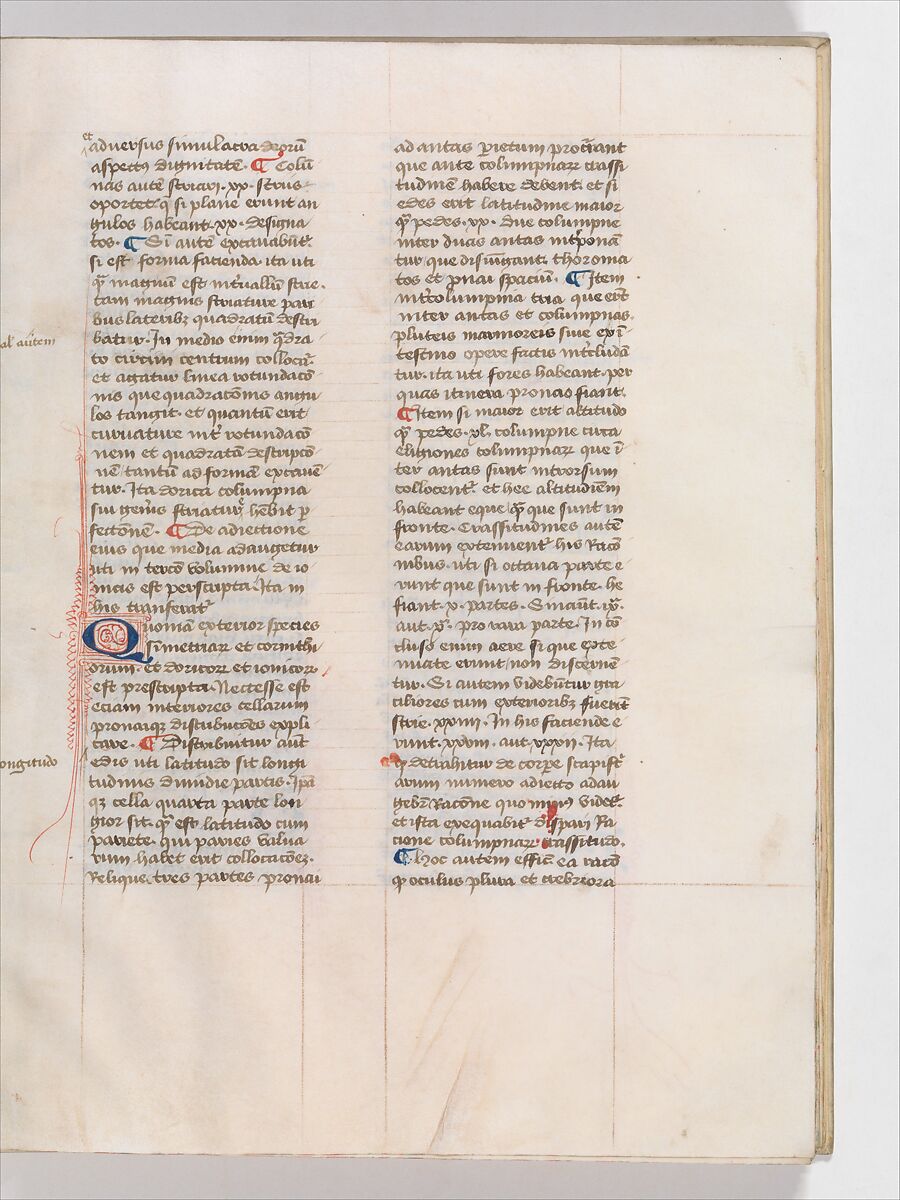 et
adversus simulacra deorū
aspectꝰ dignitatē. ¶ Colū
nas autē striari .xx. striis
oportet q̄ si plane erunt an
gulos habeant .xx. designa
tos. ¶ Si autē excavabūtᷣ.
si est forma facienda. ita uti
q̄ magnū est int̄vallū strie.
tam magnis striature pari
bus lateribꝫ quadratū descri
batur. In medio enim q̄dra
al' autem
to circini centrum collocetᷣ.
et agatur linea rotundacō
nis que quadracōnis angu
los tangit. et quantū erit
curvature int̄ rotundacō
nem et quadratā descripcō
nē tantū ad formā excavē
tur. Ita dorica columpna
sui gen̄is striaturᷓ hēbit p
fectōnē. ¶ De adiectione
eius que media adaugetur
uti in tercō volumine de io
nicis est perscripta. Ita in
his transferatᷣ
Quoniā exterior species
simetriaꝝ et corinthi
orum. et doricoꝝ et ionicoꝝ.
est prescripta. Necesse est
eciam interiores cellarum
pronaiqꝫ distribucōes expli
care. ¶ Distribuitur aut̄
edis uti latitudo sit longi
longitudo
tudinis dimidie partis. Ip̄a
qꝫ cella quarta parte lon
gior sit. q̄ est latitudo cum
pariete. qui paries valva
rum habet erit collocacōeꝫ.
Relique tres partes pronai
ad antas p̄ietum procūant
que ante columpnaꝝ crassi
tudinē habere debent. et si
edes erit latitudine maior
q̄ pedes .xx. due columpne
inter duas antas int̄ponā
tur que disiūgant. thoroma
tos et pnai spaciū. ¶ Item
int̄columpnia tria que erūt
inter antas et columpnas.
pluteis marmoreis sive ex ī
testino opere factis int̄cludā
tur. ita uti fores habeant. per
quas itinera pronao fiant.
¶ Item si maior erit altitudo
q̄ pedes .xl. columpne circa
eligiones columpnaꝝ que ī
ter antas sunt introrsum
collocentᷣ. et hee altitudinem
habeant eque q̄ que sunt in
fronte. Crassitudines autē
earum extenuentᷣ his racō
nibus. uti si octava parte e
runt que sunt in fronte. he
fiant .x. partes. Sin aūt .ix.
aut .x. pro rata parte. In cō
cluso enim aere si que exte
nuate erunt non discernē
tur. Si autem videbūtur gra
ciliores cum exterioribꝫ fuerīt
strie .xxiiii. In his faciende e
runt. xxviii. aut .xxxii. Ita
q̄ detrahitur de corpe scapistᷣ
arum numero adiecto adau
gebrᷣ Racōne quo minꝰ videtᷣ.
et ista exequabitᷣ dispari Ra
cione columpnaꝝ crassitudo.
¶ hoc autem efficit ea racō
ꝙ oculus plura et crebriora